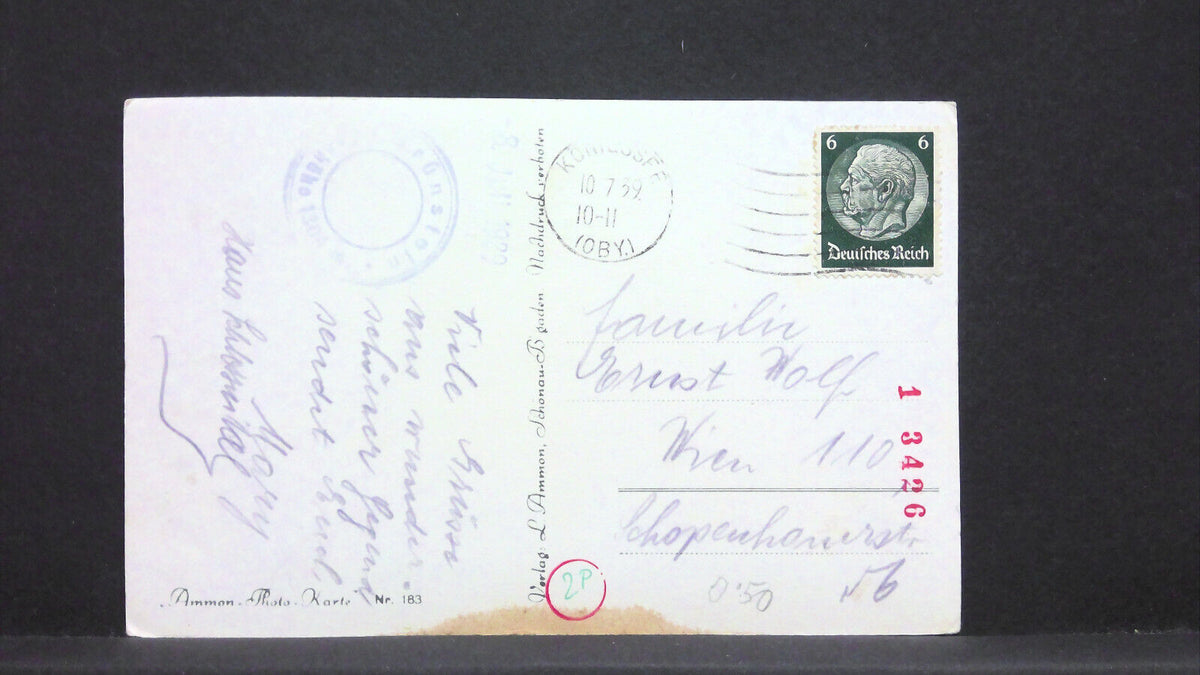 Viele Grüsse
aus wunder-
schöner Gegend
sendet Euch,
Mary
Hans
8. JULI 1939
"Ammon-Photo-Karte" Nr. 183
Verlag: L. Ammon, Schönau-B'gaden Nachdruck verboten
KÖNIGSSEE
10.7.39.
10-11
(OBY.)
6 6
Deutsches Reich
Familie
Ernst Wolf
Wien 110
Schopenhauerstr.
56
1 3426
2P
0'50